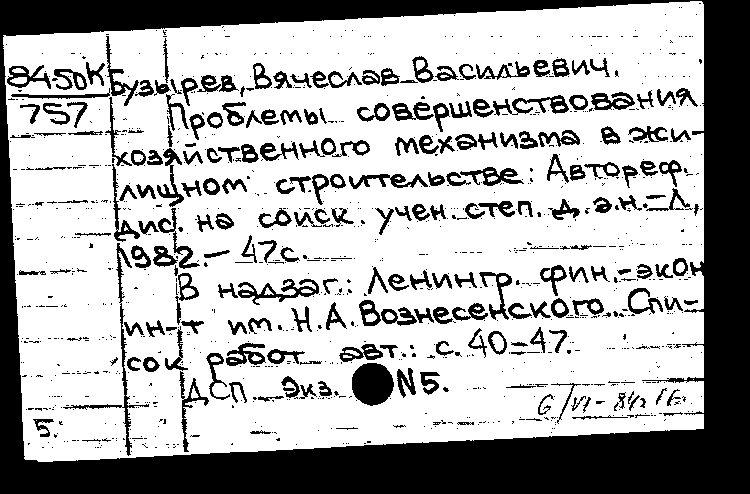 84-50К Бузырев, Вячеслав Васильевич.
757 Проблемы совершенствования
хозяйственного механизма в жи-
лищном строительстве: Автореф.
дис. на соиск. учен. степ. д.э.н. - Л,
1982. - 47с.
В надзаг.: Ленингр. фин.-экон
ин-т им. Н.А. Вознесенского. Спи-
сок работ авт.: с. 40-47.
ДСП Экз. N5.
6/VI - 84г
5.